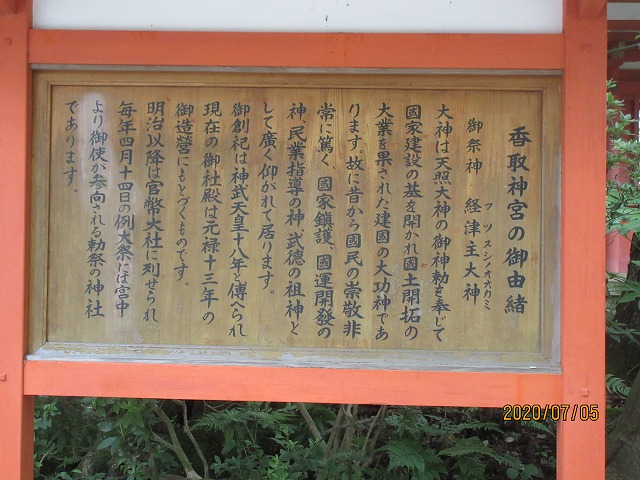 香取神宮の御由緒
御祭神 経津主大神
フツヌシノオオカミ
大神は天照大神の御神勅を奉じて
國家建設の基を開かれ國土開拓の
大業を果された建國の大功神であ
ります。故に昔から國民の崇敬非
常に篤く、國家鎮護、國運開發の
神、民業指導の神、武徳の祖神と
して廣く仰がれて居ります。
御創祀は神武天皇十八年と傳へられ
現在の御社殿は元禄十三年の
御造營にもとづくものです。
明治以降は官幣大社に列せられ
毎年四月十四日の例大祭には宮中
より御使が参向される勅祭の神社
であります。
2020/07/05